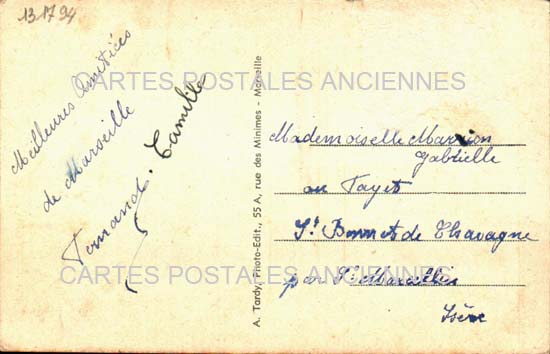 131794
Meilleures Amitiés
de Marseille
Fernand. Camille
A. Tardy, Photo-Edit., 55 A, rue des Minimes - Marseille
Mademoiselle Marrion
Gabrielle
au Tayet
St Bonnet de Chavagne
par St Marcellin
Isère
CARTES POSTALES ANCIENNES
CARTES POSTALES ANCIENNES